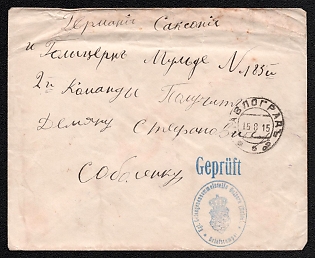 Германiя Саксонiя
и Голицернъ Мульде N 185й
2й Команды Получить
Демяну Стефанови
Соболенку
ПАВЛОГРАДЪ
15 6 15
Geprüft